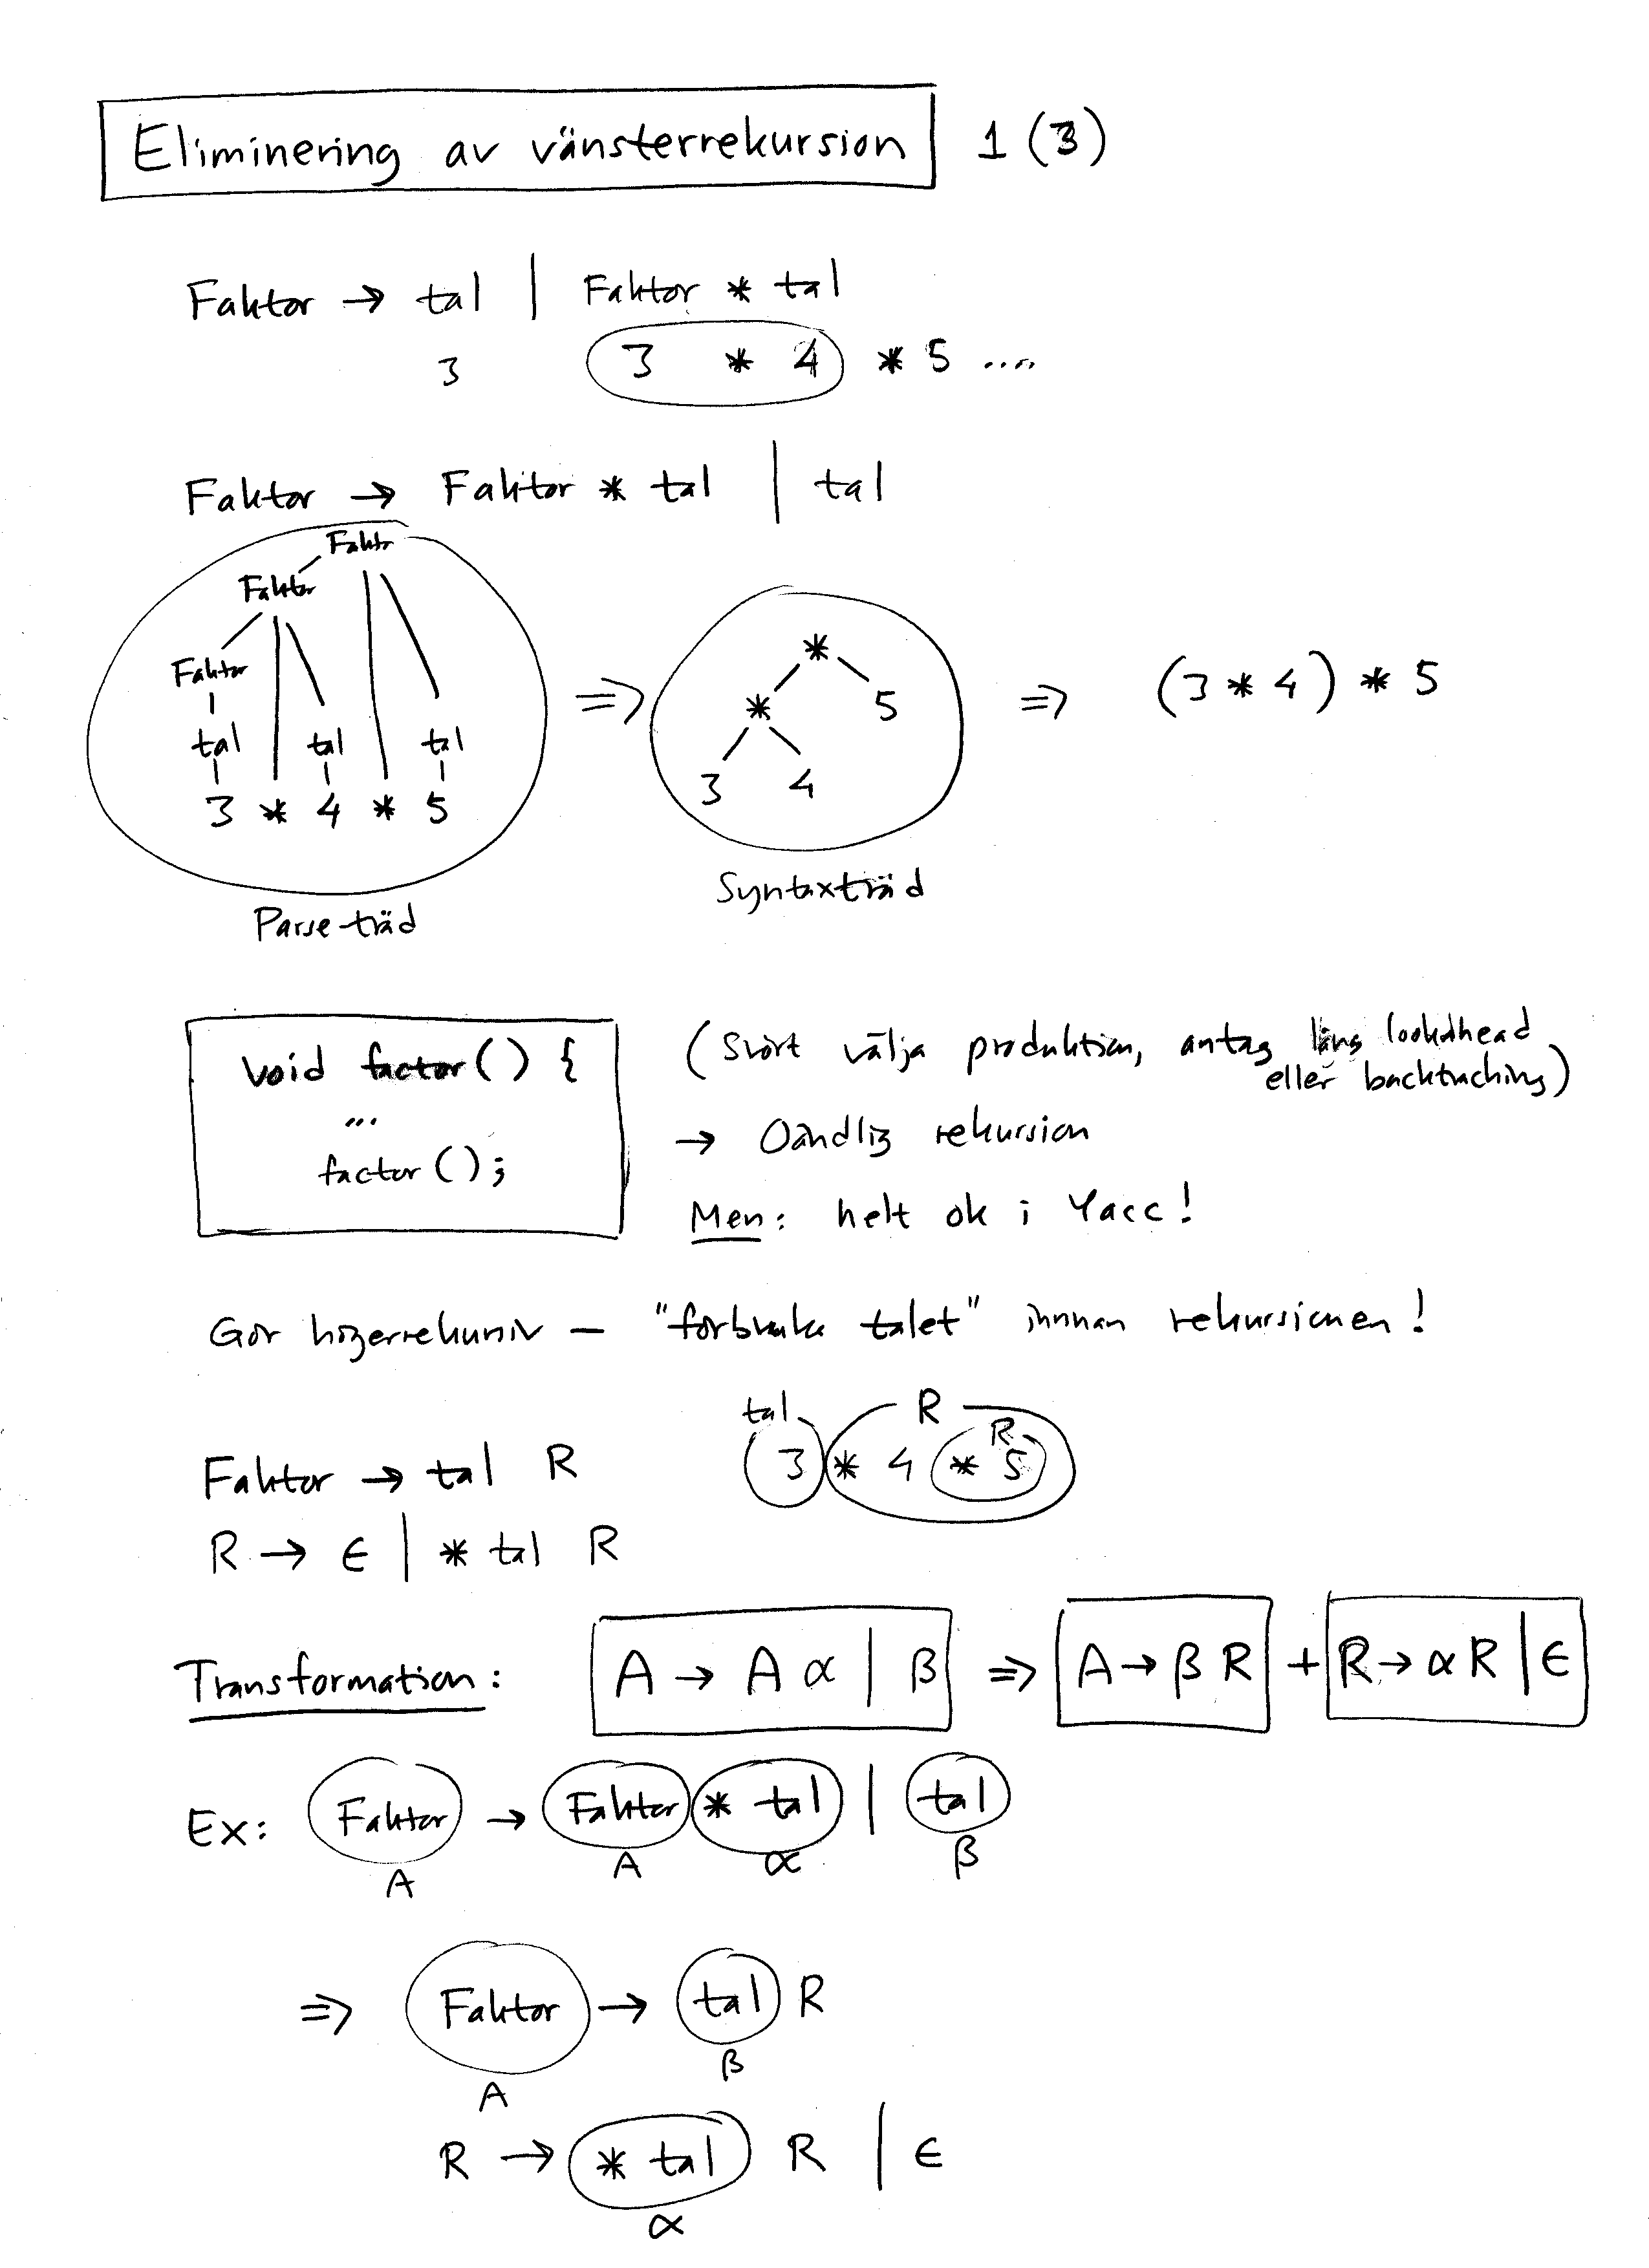 Eliminering av vänsterrekursion 1 (3)
Faktor → tal | Faktor * tal
3 3 * 4 * 5 ....
Faktor → Faktor * tal | tal
Faktor
Faktor
Faktor
tal tal tal
3 * 4 * 5
Parse-träd
*
* 5
3 4
Syntaxträd
⇒ ⇒ (3 * 4) * 5
void factor() {
...
factor();
(Svårt välja produktion, antag lång lookahead
eller backtracking)
→ Oändlig rekursion
Men: helt ok i Yacc!
Gör högerrekursiv — "förbruka talet" innan rekursionen!
tal R
R
3 * 4 * 5
Faktor → tal R
R → ϵ | * tal R
Transformation: A → A α | β ⇒ A → β R + R → α R | ϵ
Ex: Faktor → Faktor * tal | tal
A A α β
⇒ Faktor → tal R
A β
R → * tal R | ϵ
α